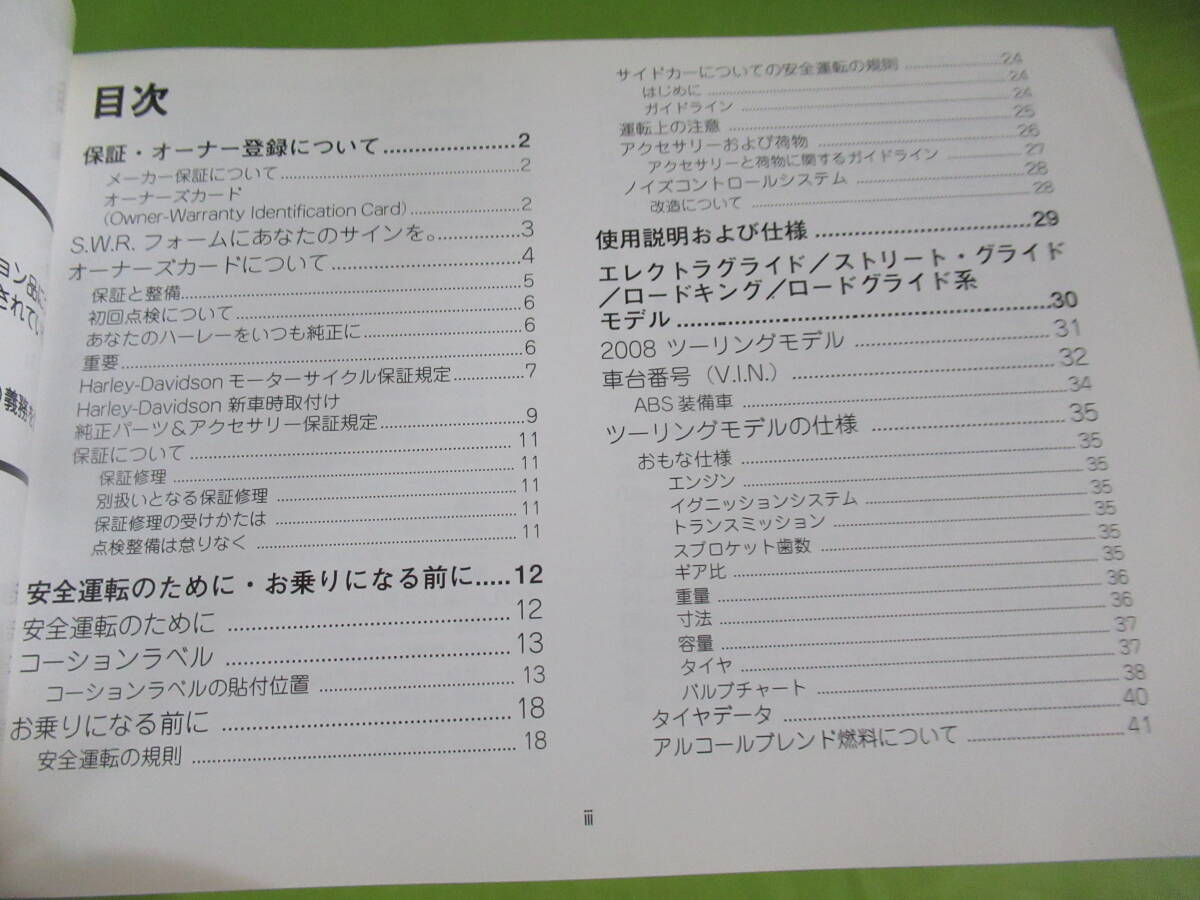 ョン品に
されてい
義務を
目次
保証・オーナー登録について ..................... 2
メーカー保証について ..................... 2
オーナーズカード
(Owner-Warranty Identification Card) ..................... 2
S.W.R. フォームにあなたのサインを。 ..................... 3
オーナーズカードについて ..................... 4
保証と整備 ..................... 5
初回点検について ..................... 6
あなたのハーレーをいつも純正に ..................... 6
重要 ..................... 6
Harley-Davidson モーターサイクル保証規定 ..................... 7
Harley-Davidson 新車時取付け
純正パーツ＆アクセサリー保証規定 ..................... 9
保証について ..................... 11
保証修理 ..................... 11
別扱いとなる保証修理 ..................... 11
保証修理の受けかたは ..................... 11
点検整備は怠りなく ..................... 11
安全運転のために・お乗りになる前に ..... 12
安全運転のために ..................... 12
コーションラベル ..................... 13
コーションラベルの貼付位置 ..................... 13
お乗りになる前に ..................... 18
安全運転の規則 ..................... 18
サイドカーについての安全運転の規則 ..................... 24
はじめに ..................... 24
ガイドライン ..................... 24
運転上の注意 ..................... 25
アクセサリーおよび荷物 ..................... 26
アクセサリーと荷物に関するガイドライン ..................... 27
ノイズコントロールシステム ..................... 28
改造について ..................... 28
使用説明および仕様 ..................... 29
エレクトラグライド／ストリート・グライド
／ロードキング／ロードグライド系
モデル ..................... 30
2008 ツーリングモデル ..................... 31
車台番号（V.I.N.） ..................... 32
ABS 装備車 ..................... 34
ツーリングモデルの仕様 ..................... 35
おもな仕様 ..................... 35
エンジン ..................... 35
イグニッションシステム ..................... 35
トランスミッション ..................... 35
スプロケット歯数 ..................... 35
ギア比 ..................... 35
重量 ..................... 36
寸法 ..................... 36
容量 ..................... 37
タイヤ ..................... 37
バルブチャート ..................... 38
タイヤデータ ..................... 40
アルコールブレンド燃料について ..................... 41
iii